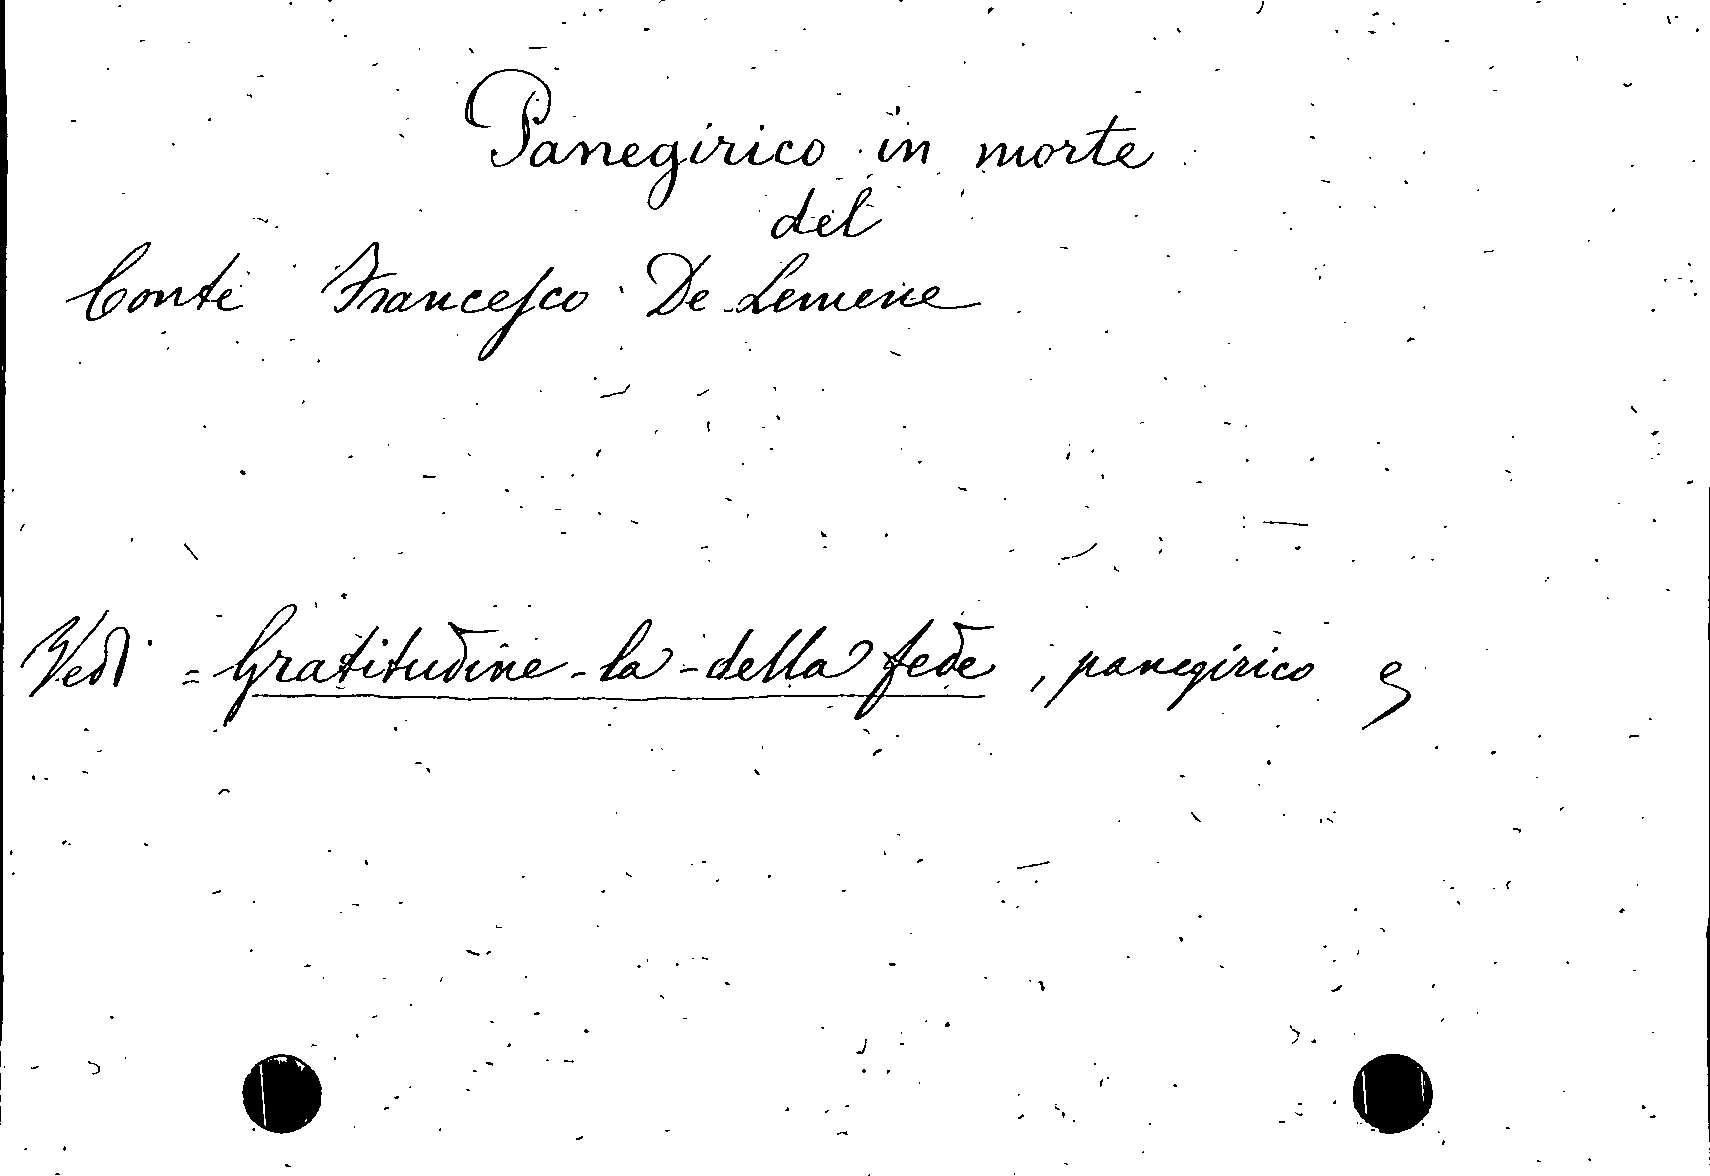 Panegirico in morte
del
Conte Francesco De Lemene
Vedi = Gratitudine - la - della fede, panegirico